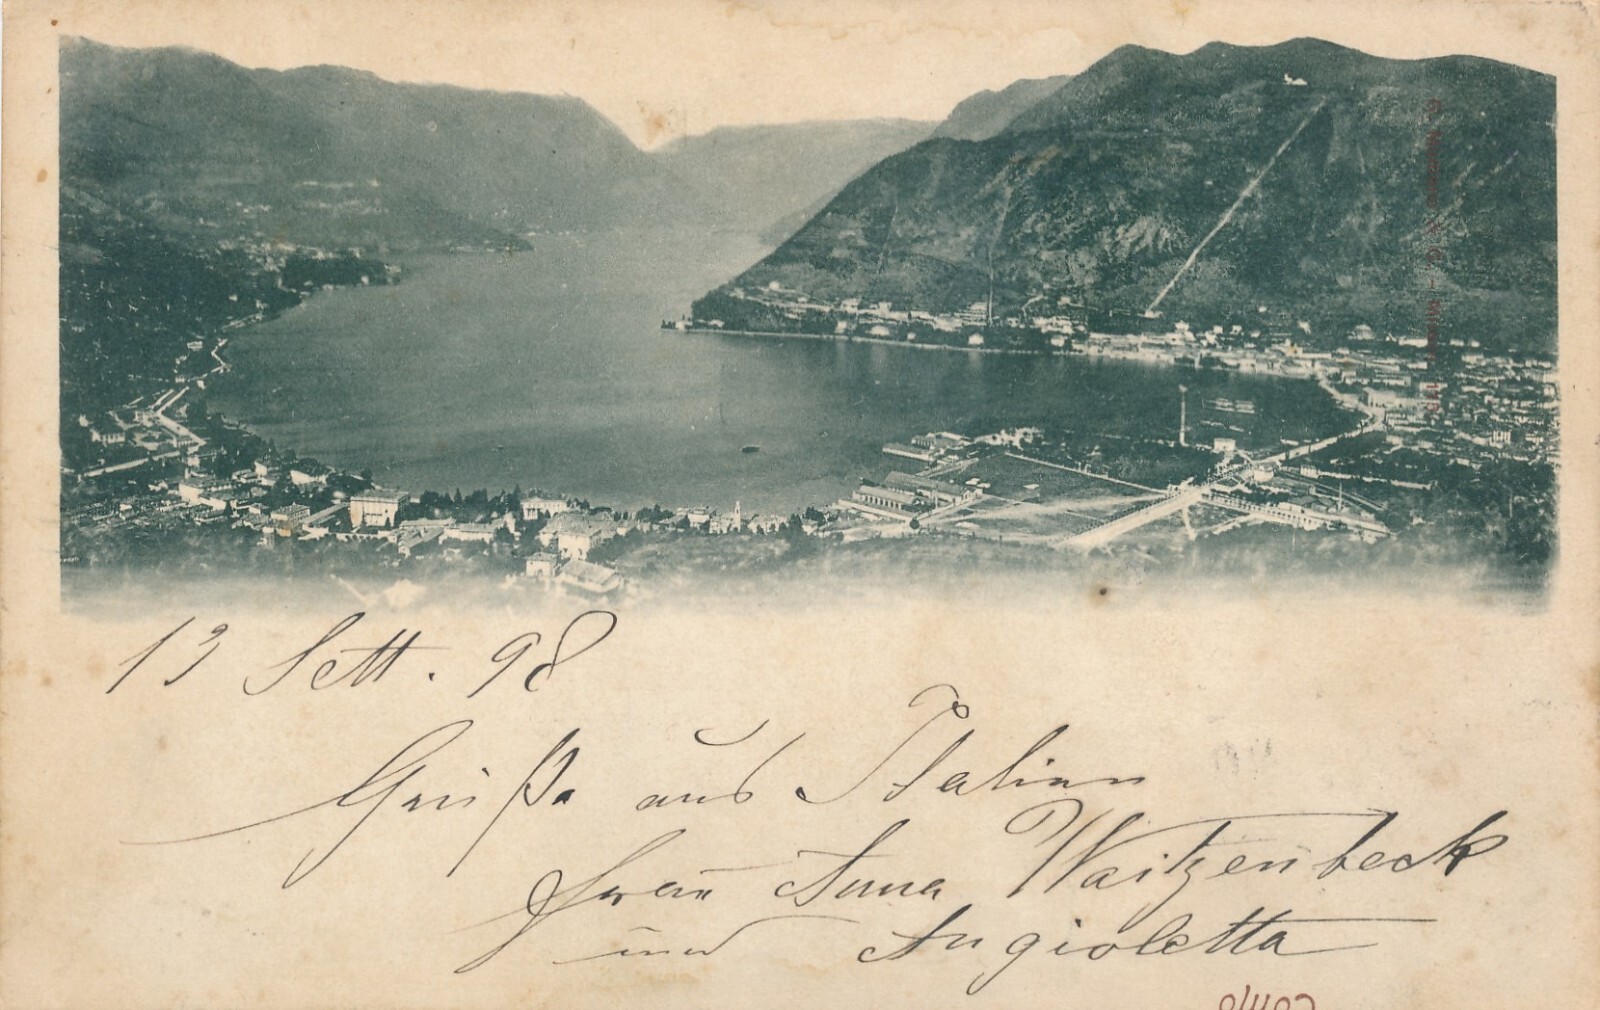 13 Sett. 98
Grüße aus Italien
Frau Anna Waitzenbeck
und Angioletta